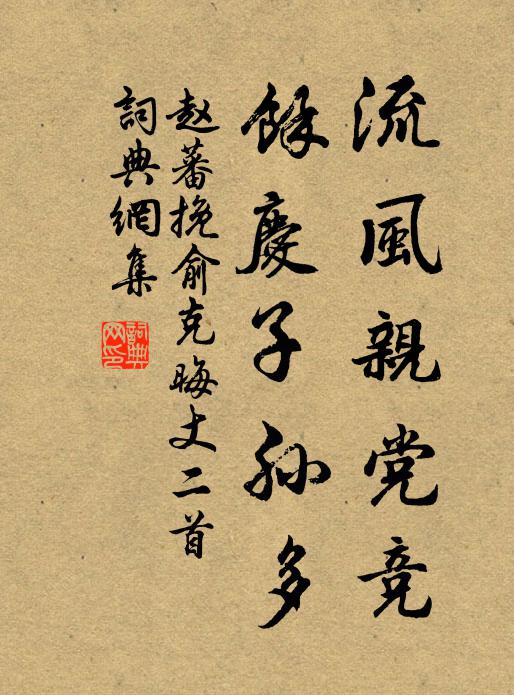 流風親党竞
餘慶子孙多
赵蕃挽俞克晦丈二首
詞典網集
詞典网印